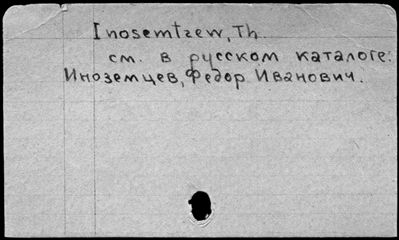 Inosemtzew, Th.
см. в русском каталоге:
Иноземцев, Федор Иванович.